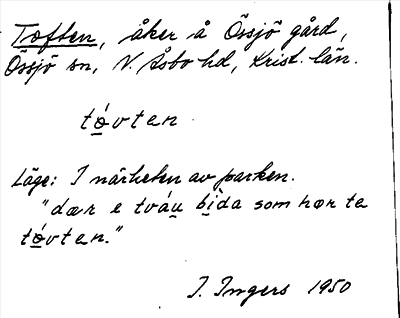 Toften, åker å Össjö gård,
Össjö sn, N. Åsbo hd, Krist. län.
tó̲vten
Läge: I närheten av parken.
"dær e tváu̲ bi̲da som hør te
tó̲vten."
I. Ingers 1950